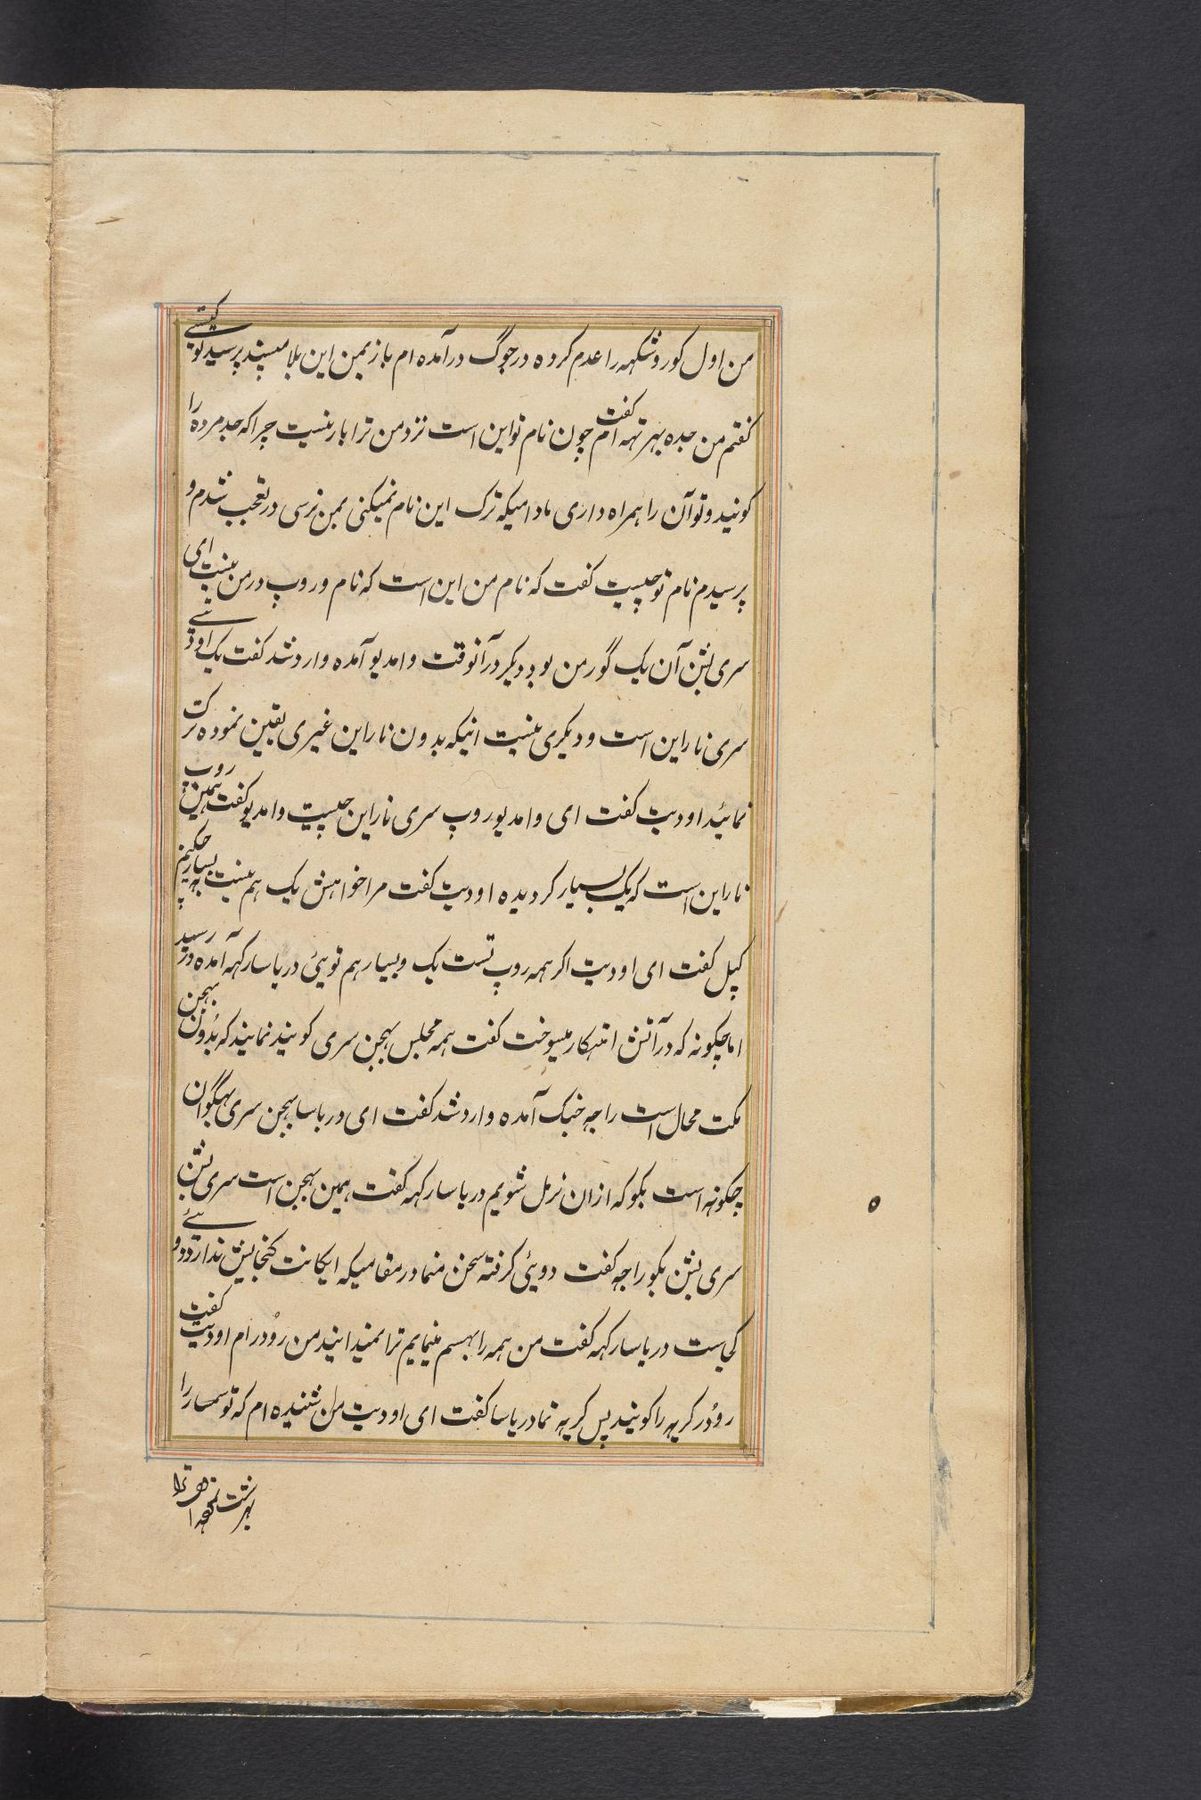 من اول کور و شکهه را عدم کرده در جوگ درآمده ام باز بمن این بلا مپسند پرسید تو کیستی
کفتم من جده بهرتهه ام کفت چون نام تو این است نزد من ترا بار نیست چرا که جد مرده را
کویند و تو آن را همراه داری مادامیکه ترک این نام نمیکنی بمن نرسی در تعجب شدم و
پرسیدم نام تو چیست کفت که نام من این است که نام و روپ در من نیست ای
سری بشن آن یک گور من بود دیکر درآنوقت وامدیو آمده وارد شد کفت یک اودیتی
سری ناراین است و دیکری نیست اینکه بدون ناراین غیری یقین نموده ترکت
نمائید اودیت کفت ای وامدیو روپ سری ناراین چیست وامدیو کفت همین روپ
ناراین است که یک بسیار کردیده اودیت کفت مرا خواهش یک هم نیست به بسیار چکنم
کپل کفت ای اودیت اکر همه روپ تست یک و بسیار هم توئی درباسا رکهه آمده در رسید
اما چکونه که درآتش اهنکار میسوخت کفت همه مجلس بهجن سری کوبند نمایند که بدون بهجن
مکت محال است راجه جنک آمده وارد شد کفت ای درباسا بهجن سری بهگوان
چکونه است بکو که ازان نرمل شویم درباسا رکهه کفت همین بهجن است سری بشن
سری بشن بکو راجه کفت دوئی کرفته سخن منما در مقامیکه ایکانت کنجایش ندارد دوئی
کجاست درباسا رکهه کفت من همه را بهسم مینمایم ترا نمیدانید من رودر ام اودیت کفت
رودر کریه را کویند پس کریه نما درباسا کفت ای اودیت من شنیده ام که تو سمسار را
بهرشت